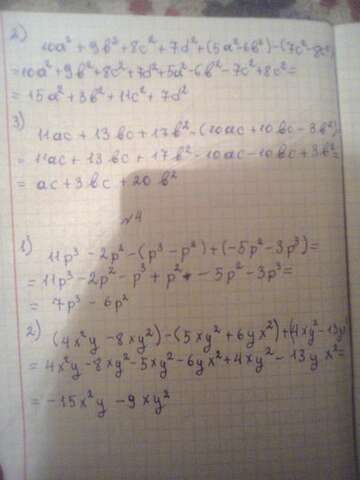 2)
10a² + 9b² + 8c² + 7d² + (5a² - 6b²) - (7c² - 8c²)
= 10a² + 9b² + 8c² + 7d² + 5a² - 6b² - 7c² + 8c² =
= 15a² + 3b² + 11c² + 7d²
3)
11ac + 13bc + 17b² - (10ac + 10bc - 3b²)
= 11ac + 13bc + 17b² - 10ac - 10bc + 3b² =
= ac + 3bc + 20b²
№4
1) 11p³ - 2p² - (p³ - p²) + (-5p² - 3p³) =
= 11p³ - 2p² - p³ + p² - 5p² - 3p³ =
= 7p³ - 6p²
2) (4x²y - 8xy²) - (5xy² + 6yx²) + (4xy² - 13y
= 4x²y - 8xy² - 5xy² - 6yx² + 4xy² - 13yx² =
= -15x²y - 9xy²